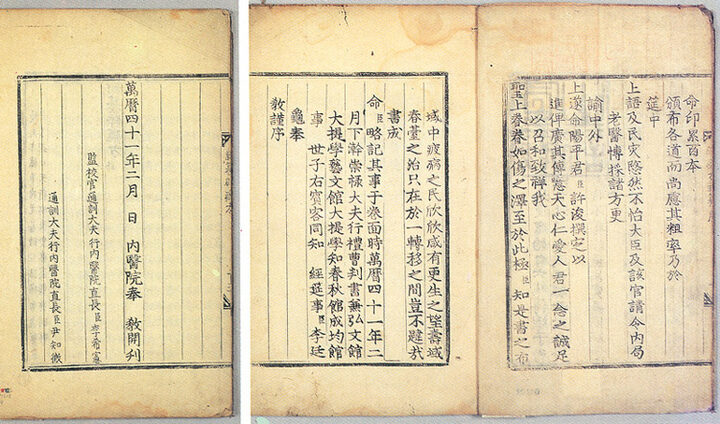 命印累百本
頒布各道而尚慮其粗率乃於
筵中
上語及民灾愍然不怡大臣及該官請令内局
老醫博採諸方更
諭中外
上遂命陽平君臣許浚撰定以
進俾廣其傳噫天心仁愛人君一念之誠足
以召和致祥我
聖上眷眷如傷之澤至於此極臣知是書之布
域中疲癃之民欣欣咸有更生之望壽域
春臺之治只在於一轉移之間豈不韙哉
書成
命臣略記其事于卷面時萬曆四十一年二
月下澣崇祿大夫行禮曹判書兼弘文館
大提學藝文館大提學知春秋館成均館
事 世子右賓客同知 經筵事臣李廷
龜奉
敎謹序
萬曆四十一年二月 日 內醫院奉 敎開刊
監校官通訓大夫行內醫院直長臣李希憲
通訓大夫行內醫院直長臣尹知微